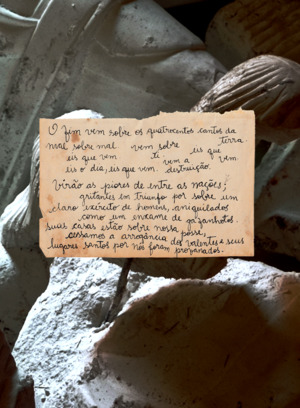 O fim vem sobre os quatrocentos cantos da terra.
mal sobre mal vem sobre eis que
eis que vem ti vem a vem
eis o dia, eis que vem destruição.
Virão as piores de entre as nações;
gritantes em triunfo por sobre um
claro exército de homens, aniquilados
como um enxame de gafanhotos.
suas casas estão sobre nossa posse,
cessamos a arrogância dos valentes e seus
lugares santos por nós foram profanados.